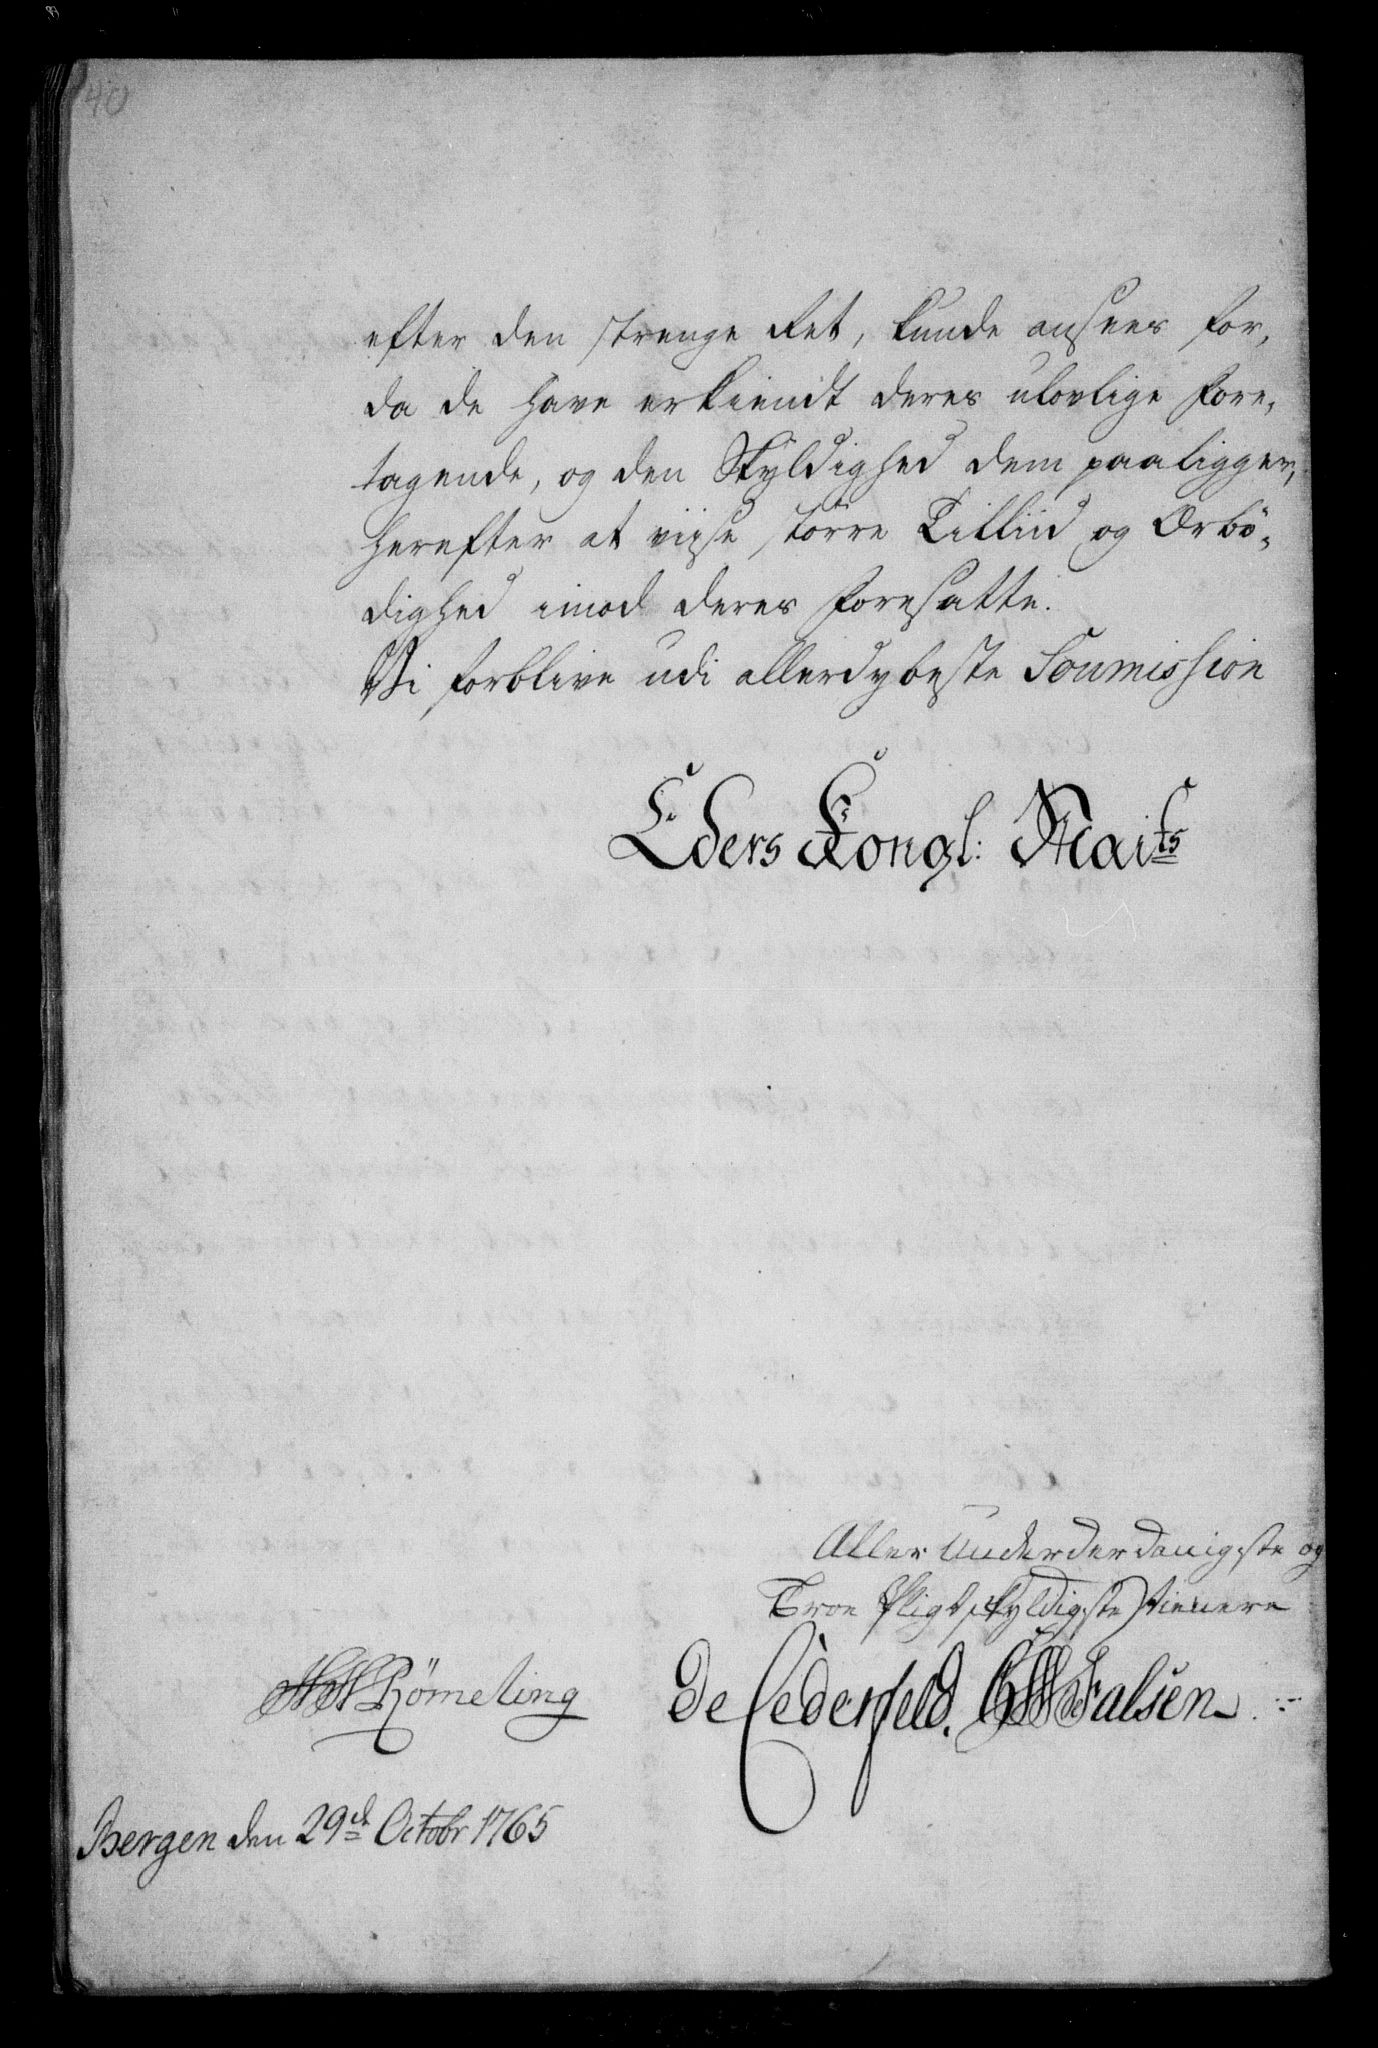 40
efter den strenge Ret, kunde ansees for,
da de have erkiendt deres ulovlige fore-
tagende, og den Skyldighed dem paaligger,
herefter at viise større Tilliid og Ærbö-
dighed imod deres foresatte.
Vi forblive udi allerdybeste Soumission
Eders Kongl: Maits
Aller Underderdanigste og
Troe Pligtskyldigste tienere
Römeling de Cederfeld. Falsen
Bergen den 29de Octobr 1765